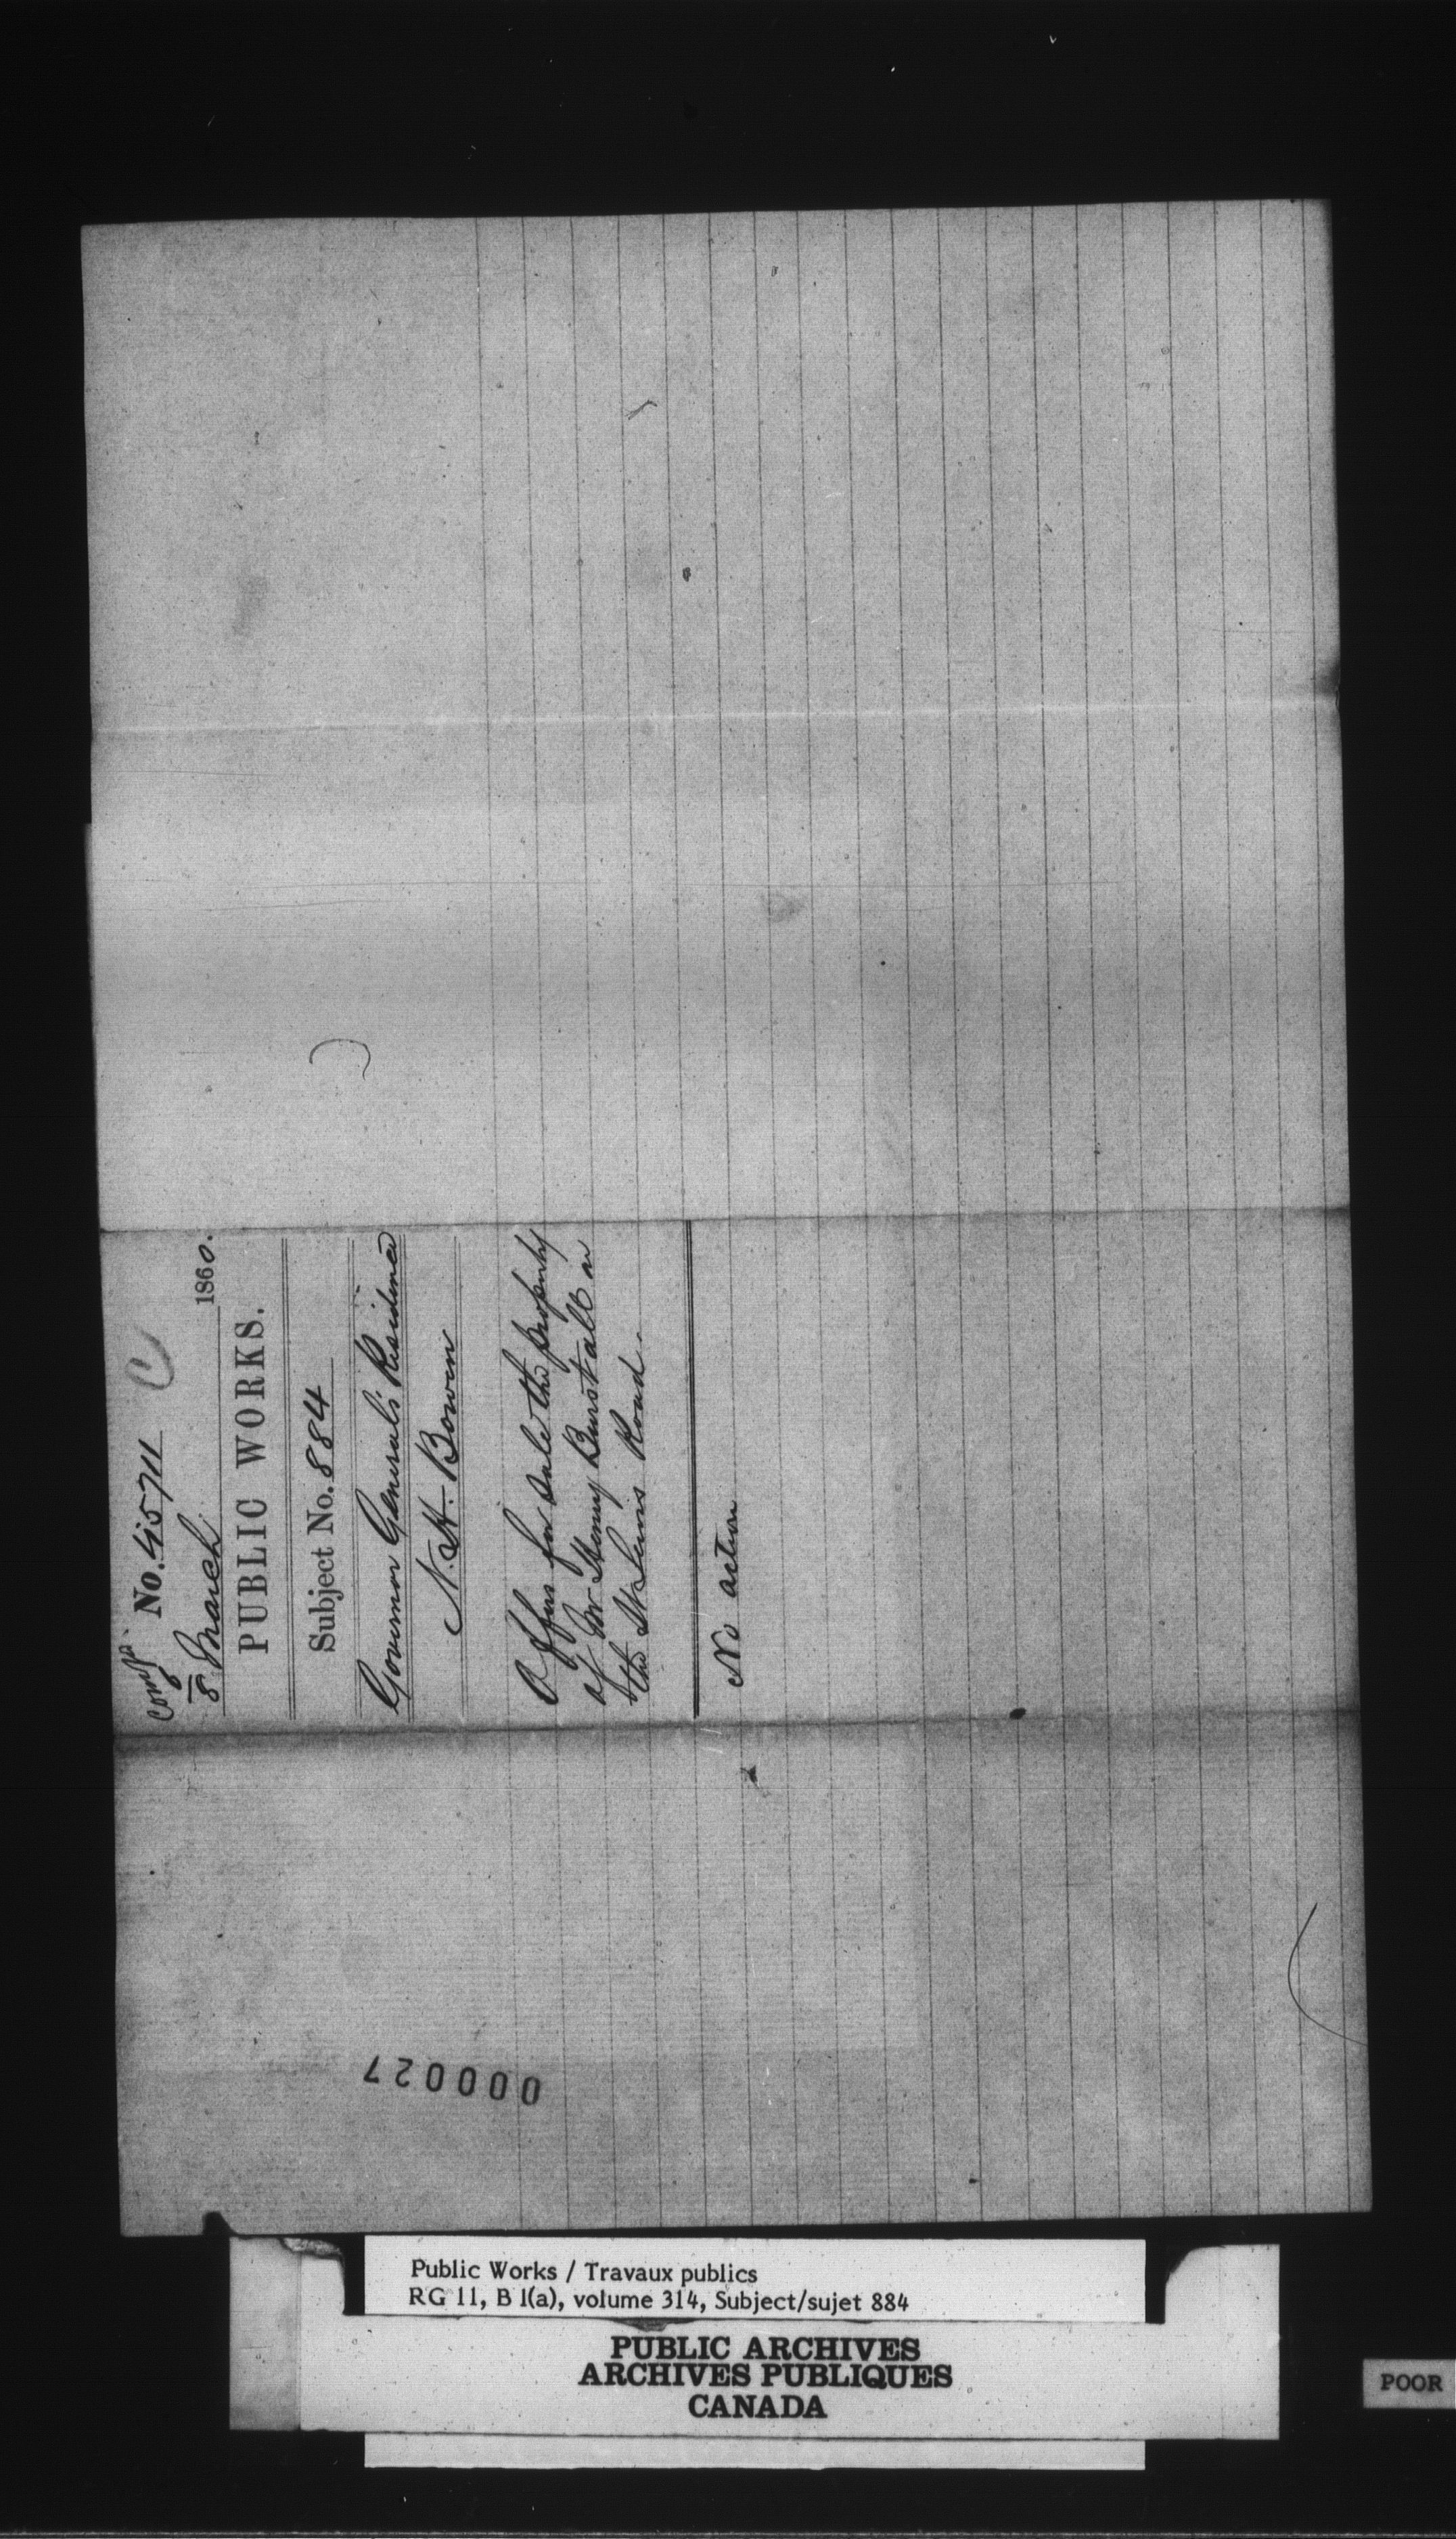 No. 45711
8 March 1860.
PUBLIC WORKS.
Subject No. 884
Governor General's Residence
N. H. Bowen
Offers for Sale the property
of Mr Henry Burstall on
the St Lewis Road.
No action
000027
Public Works / Travaux publics
RG 11, B 1(a), volume 314, Subject/sujet 884
PUBLIC ARCHIVES
ARCHIVES PUBLIQUES
CANADA
POOR